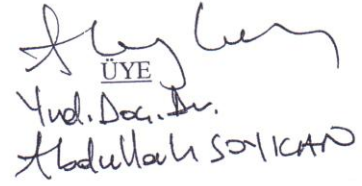 ÜYE
Yrd. Doç. Dr.
Abdullah SOYKAN